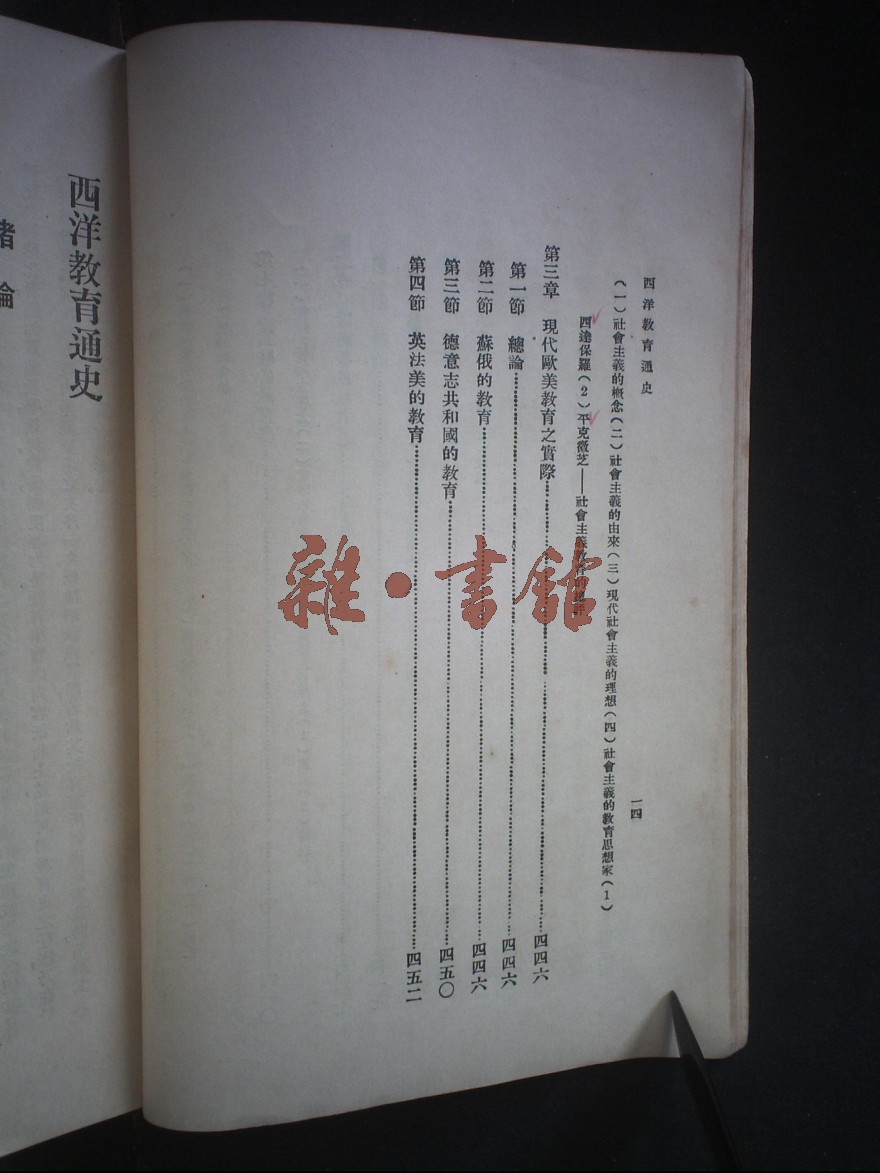 西洋教育通史
一四
（一）社會主義的概念（二）社會主義的由來（三）現代社會主義的理想（四）社會主義的教育思想家（1）
四達保羅（2）平克徵芝——社會主義教育的總評
第三章　現代歐美教育之實際……四四六
第一節　總論……四四六
第二節　蘇俄的教育……四四六
第三節　德意志共和國的教育……四五〇
第四節　英法美的教育……四五二
西洋教育通史
緒論
雜・書館